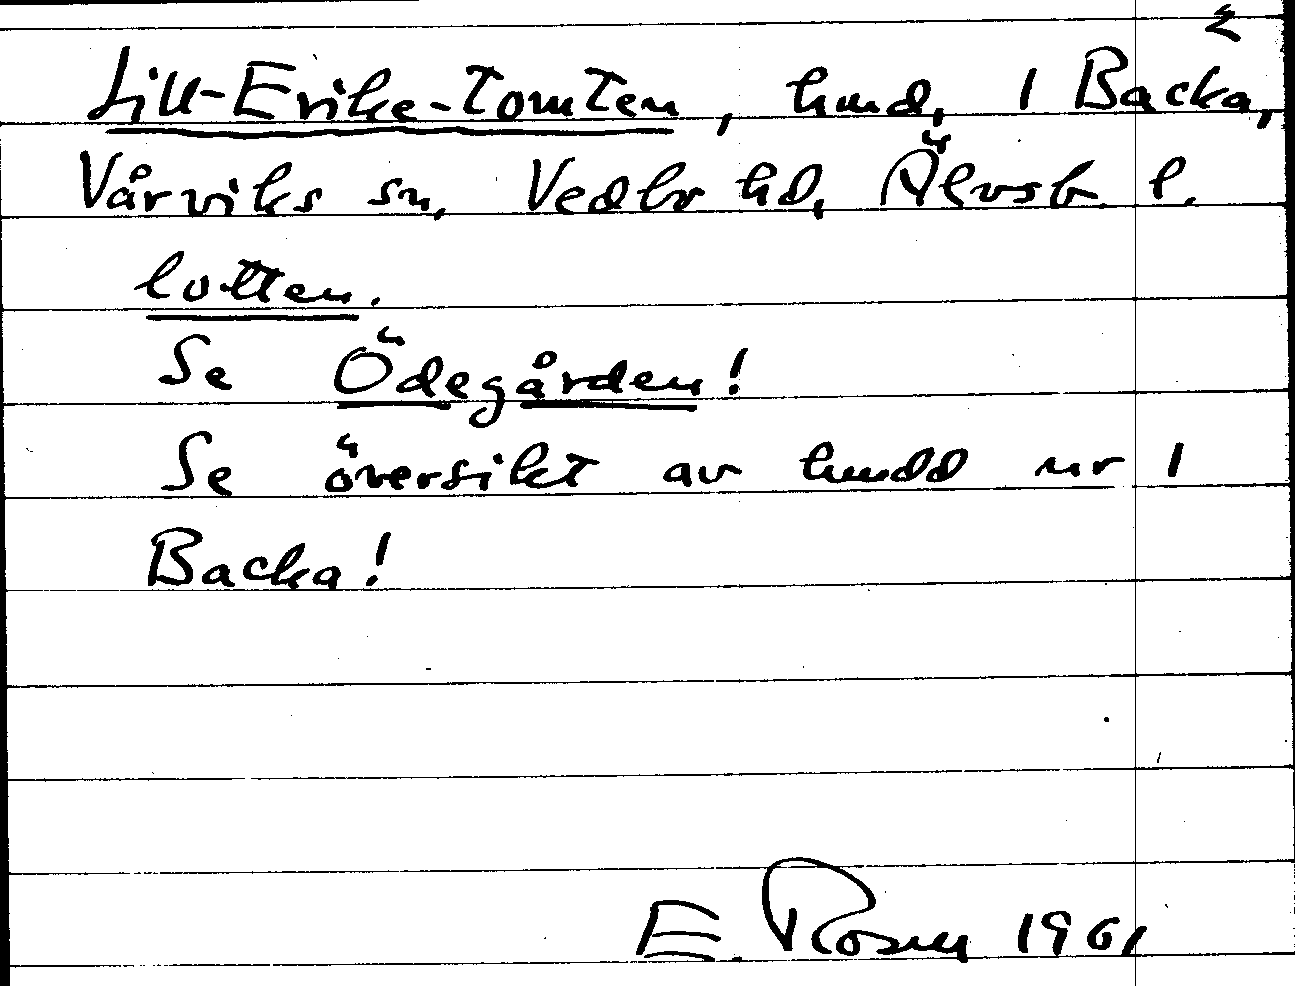 Lill-Erike-Tomten, hmd, 1 Backa,
Vårviks sn, Vedbr hd, Älvsb. l.
lotten.
Se Ödegården!
Se översikt av hmdd nr 1
Backa!
E. Rosen 1961